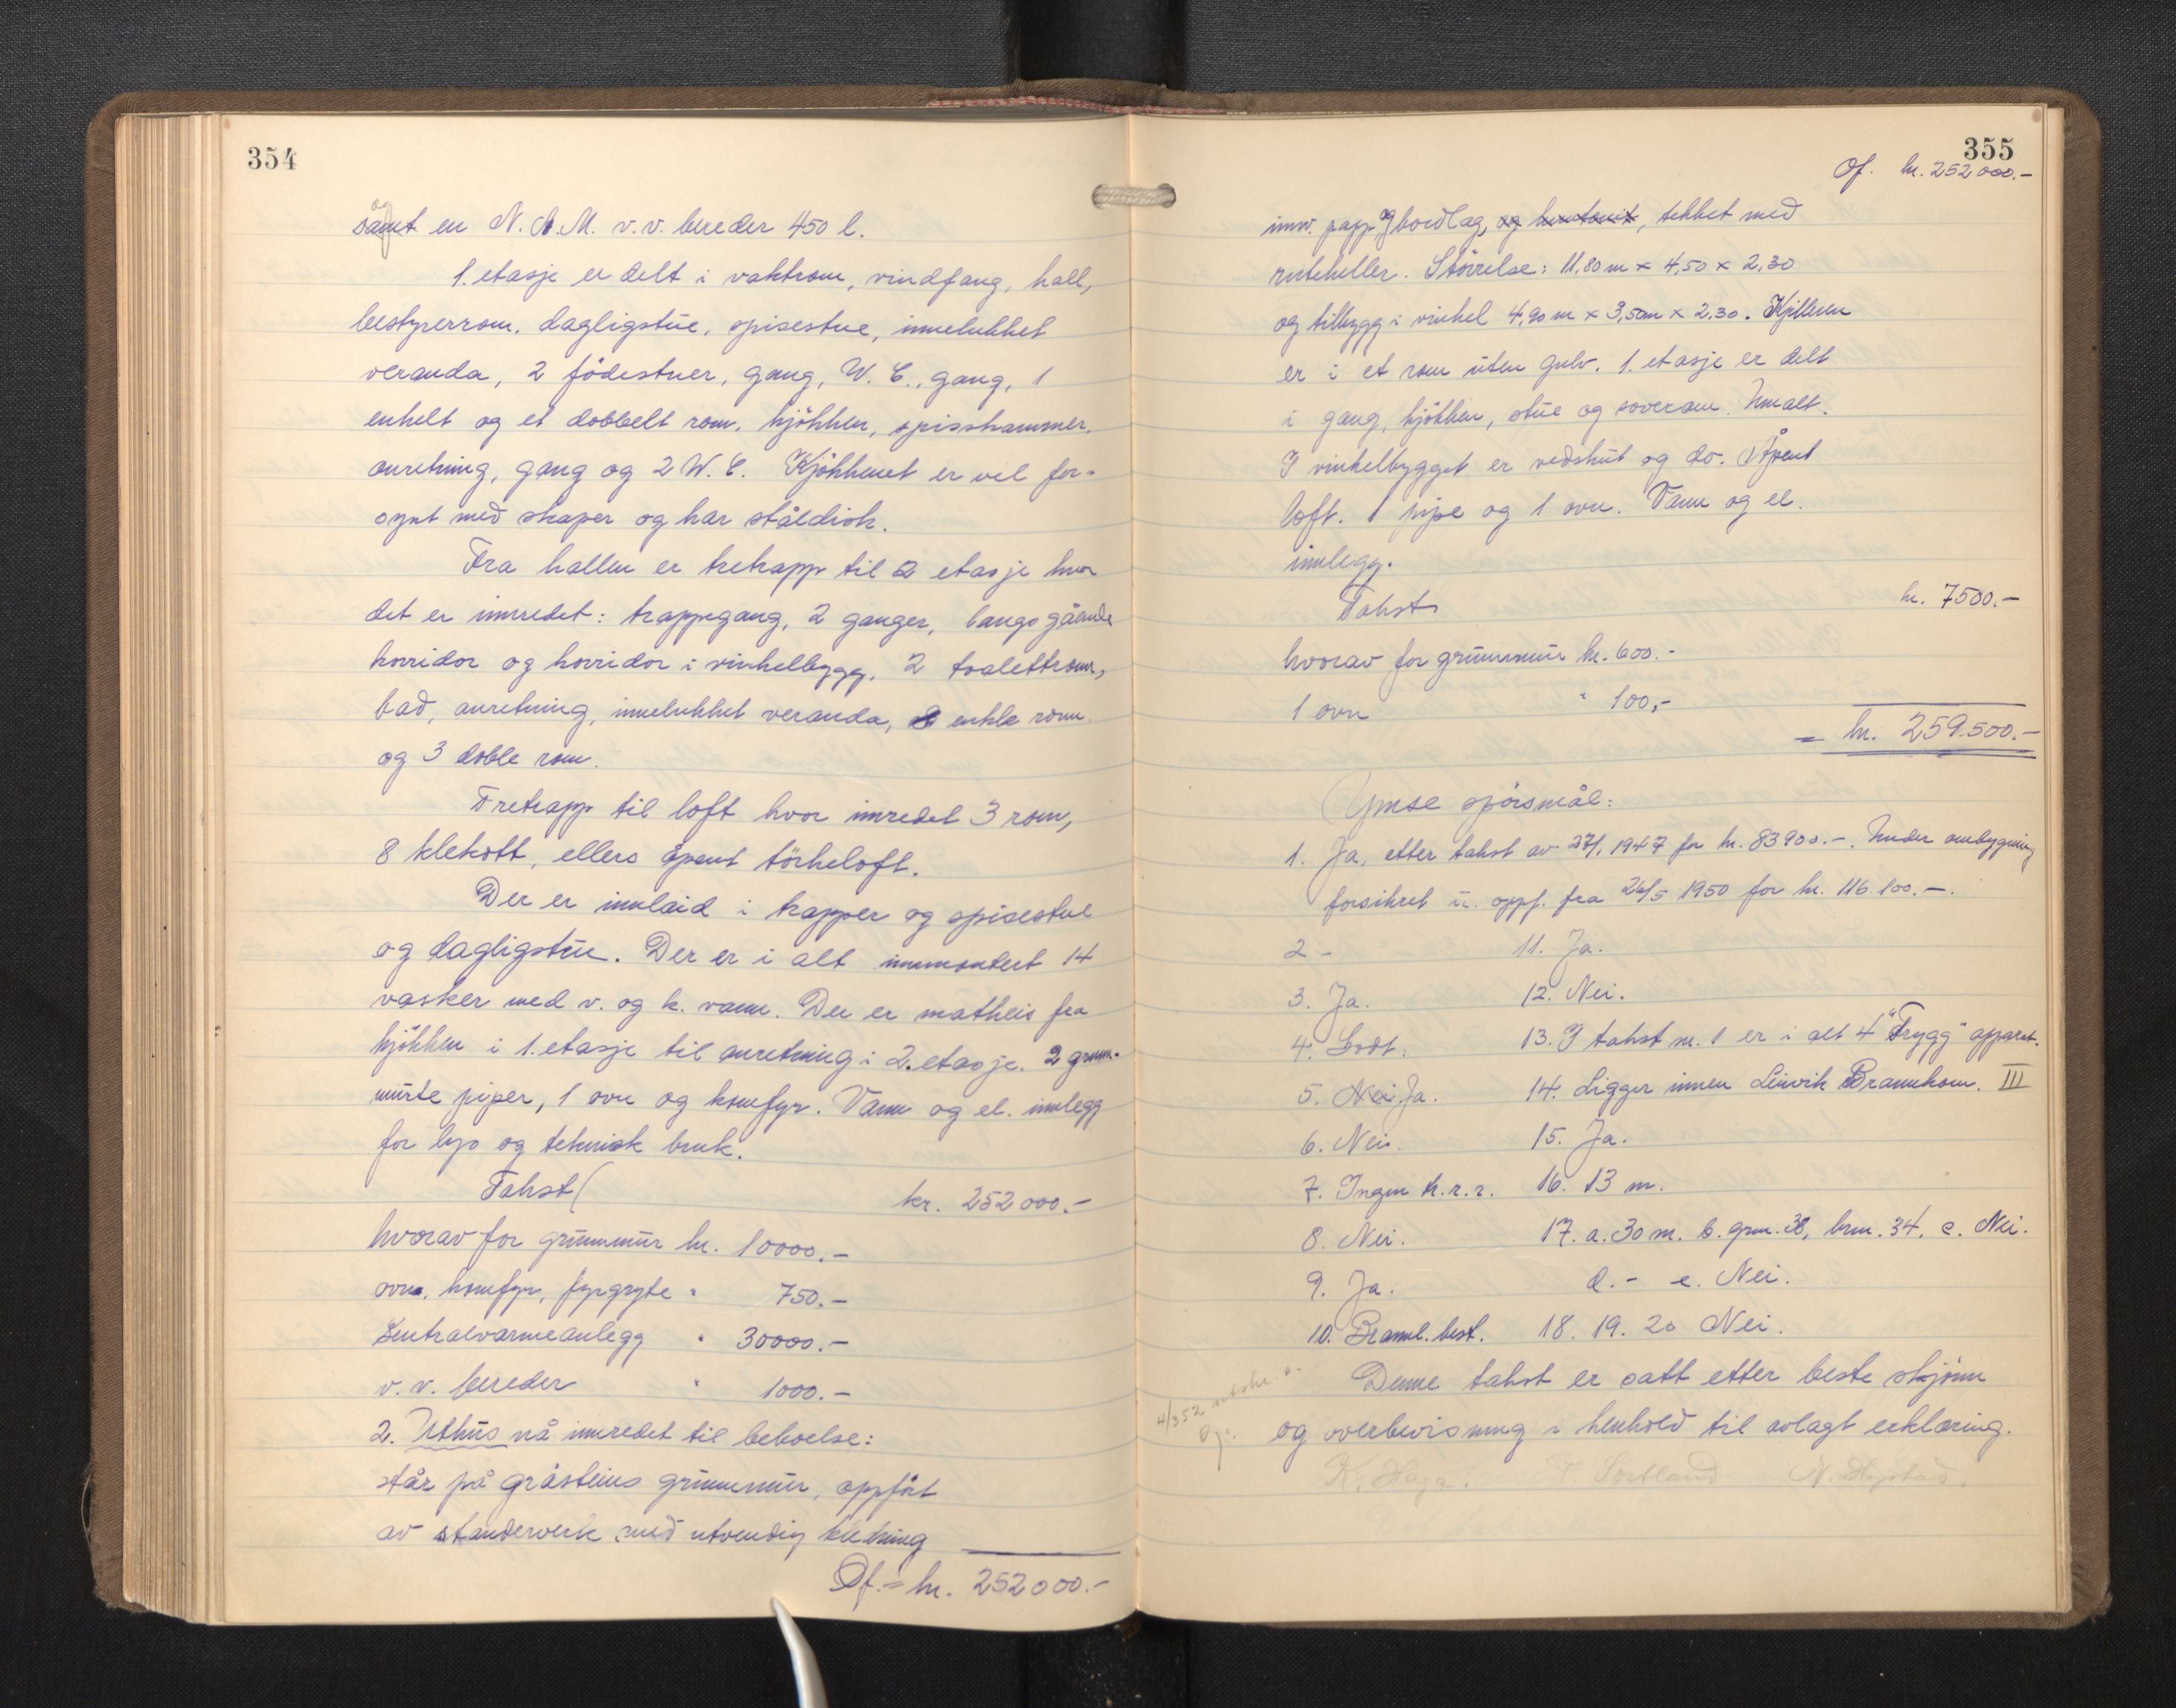 354
samt en N.A.M. v.v. bereder 450 l.
1. etasje er delt i vaktrom, vindfang, hall,
bestyrerrom, dagligstue, spisestue, innelukket
veranda, 2 födestuer, gang, W.C., gang, 1
enkelt og et dobbelt rom, kjökken, spisskammer,
anretning, gang og 2 W.C. Kjökkenet er vel for-
synt med skaper og har ståldisk.
Fra hallen er tretrapp til 2 etasje hvor
det er innredet: trappegang, 2 ganger, langsgående
korridor og korridor i vinkelbygg, 2 toalettrom,
bad, anretning, innelukket veranda, 8 enkle rom
og 3 doble rom.
Tretrapp til loft hvor innredet 3 rom,
8 klekott, ellers åpent törkeloft.
Der er innlaid i trapper og spisestue
og dagligstue. Der er i alt innmontert 14
vasker med v. og k. vann. Der er matheis fra
kjökken i 1. etasje til anretning i 2. etasje. 2 grunn-
murte piper, 1 ovn og komfyr. Vann og el. innlegg
for lys og teknisk bruk.
Takst kr. 252000.-
hvorav for grunnmur kr. 10000.-
ovn, komfyr, fyrgryte " 750.-
Sentralvarmeanlegg " 30000.-
v.v. bereder " 1000.-
2. Uthus nå innredet til beboelse:
står på gråsteins grunnmur, oppfört
av standerverk med utvendig kledning
Of. = kr. 252000.-
355
Of. kr. 252000.-
innv. papp og bordlag, og huntonit, tekket med
ruteheller. Störrelse: 11,80 m x 4,50 x 2,30
og tilbygg i vinkel 4,90 m x 3,50m x 2,30. Kjelleren
er i et rom uten gulv. 1. etasje er delt
i gang, kjökken, stue og soverom. Umalt.
I vinkelbygget er vedskut og do. Åpent
loft. 1 pipe og 1 ovn. Vann og el.
innlegg.
Takst kr. 7500.-
hvorav for grunnmur kr. 600.-
1 ovn " 100,-
= kr. 259.500.-
Ymse spörsmål:
1. Ja, etter takst av 27/1 1947 for kr. 83900.-. Under ombygning
forsikret u. oppf. fra 26/5 1950 for kr. 116.100.-.
2 - 11. Ja.
3. Ja. 12. Nei.
4. Godt. 13. I takst nr. 1 er i alt 4 "Trygg" apparat.
5. Nei. Ja. 14. Ligger innen Leirvik Brannkom. III
6. Nei. 15. Ja.
7. Ingen k.r.r. 16. 13 m.
8. Nei. 17. a. 30 m. b. grm. 38, brm. 34, c. Nei.
9. Ja. d. - e. Nei.
10. Brannl. best. 18. 19. 20 Nei.
Denne takst er satt etter beste skjönn
4/352
og overbevisning i henhold til avlagt erklæring.
K. Haga. T Sortland N. Hystad.